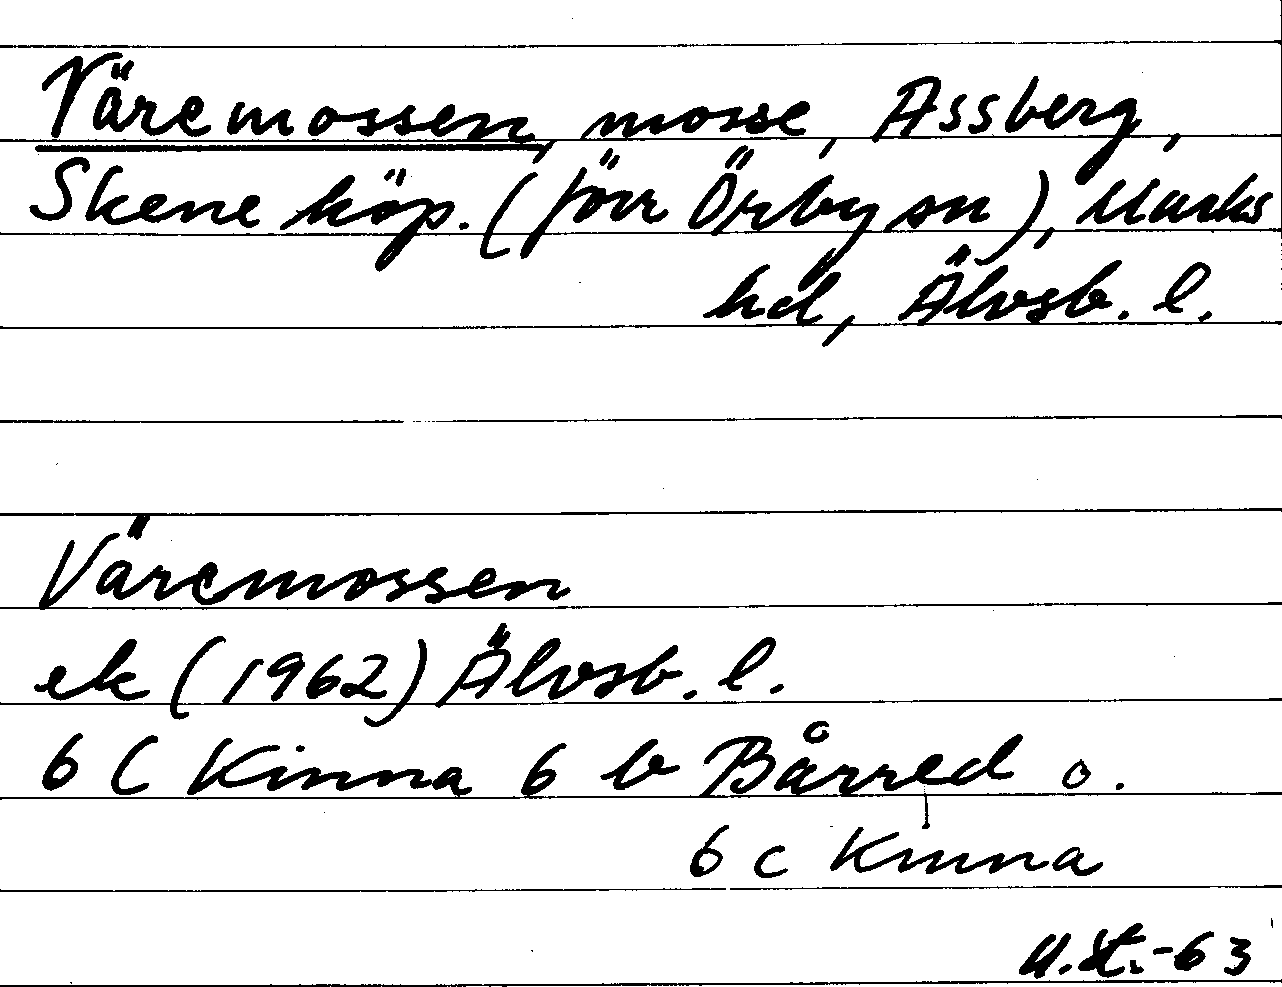 Väremossen, mosse, Assberg,
Skene köp. (förr Örby sn), Marks
hd, Älvsb. l.
Väremossen
ek (1962) Älvsb. l.
6 C Kinna 6 b Bårred o.
6 c Kinna
U.St.-63